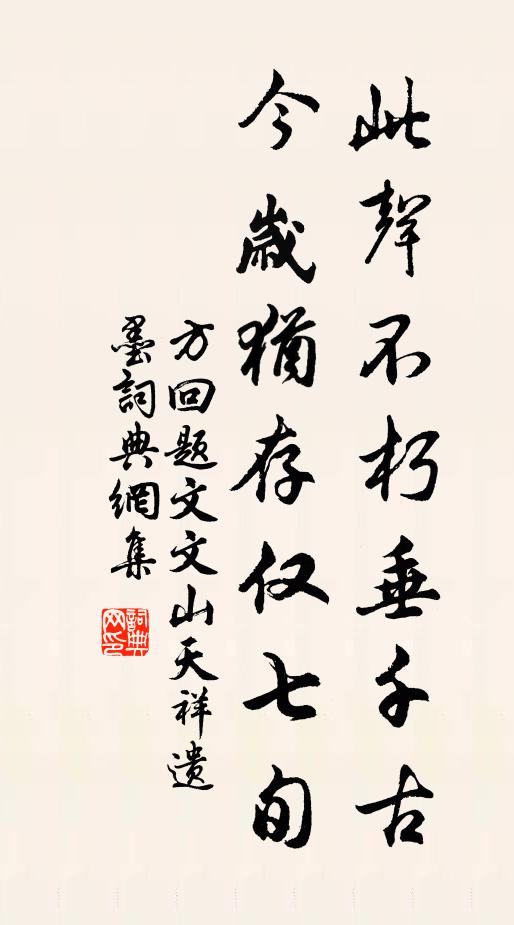 此聲不朽垂千古
今歲猶存仅七旬
方回题文文山天祥遗
墨詞典網集
詞典网印